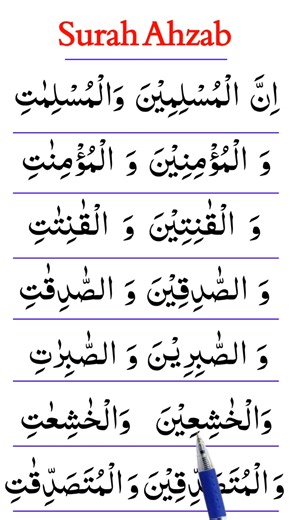 Surah Ahzab
اِنَّ الْمُسْلِمِيْنَ وَالْمُسْلِمٰتِ
وَ الْمُؤْمِنِيْنَ وَ الْمُؤْمِنٰتِ
وَ الْقٰنِتِيْنَ وَ الْقٰنِتٰتِ
وَ الصّٰدِقِيْنَ وَ الصّٰدِقٰتِ
وَ الصّٰبِرِيْنَ وَ الصّٰبِرٰتِ
وَالْخٰشِعِيْنَ وَالْخٰشِعٰتِ
وَ الْمُتَصَدِّقِيْنَ وَ الْمُتَصَدِّقٰتِ